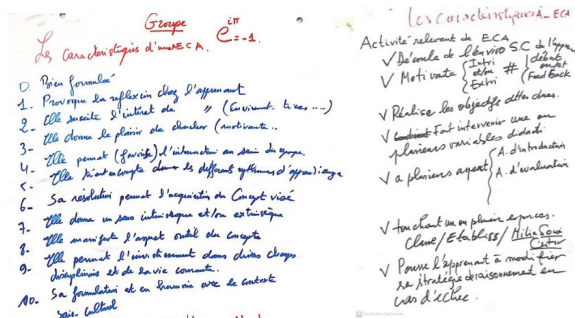 Groupe e^iπ = -1.
Les caractéristiques d'une ECA.
0. Bien formulée
1. Provoque la reflexion chez l'apprenant
2. Elle suscite l'intéret de " (
3. Elle donne le plaisir de chercher (motivante..
4. Elle permet (favorise) l'interaction au sein du groupe.
5. Elle tient compte des différents rythmes d'apprentissage
6. Sa résolution permet l'acquisition du Concept visé
7. Elle donne un sens intrinsèque et/ou extrinsèque
8. Elle manifeste l'aspect outil du concepte
9. Elle permet l'investissement dans divers champs
disciplinaires et de la vie courante.
10. Sa formulation est en harmonie avec le contexte
socio-culturel
Les caractéristiques A_ECA
Activité relevant de ECA
✓ Découle de l'enviro S.C de l'appre
✓ Motivante { Intri et/ou Extri # { début
Feed Back
✓ Réalise les objectifs attendus.
✓ Fait intervenir une ou
plusieurs variables didacti
✓ a plusieurs aspect { A. d'introduction
A. d'évaluation
✓ touchant un ou plusieurs espaces.
Classe/Etabliss/Milieu Socio
Cultur
✓ Pousse l'apprenant à modifier
sa stratégie de raisonnement en
cas d'échec.